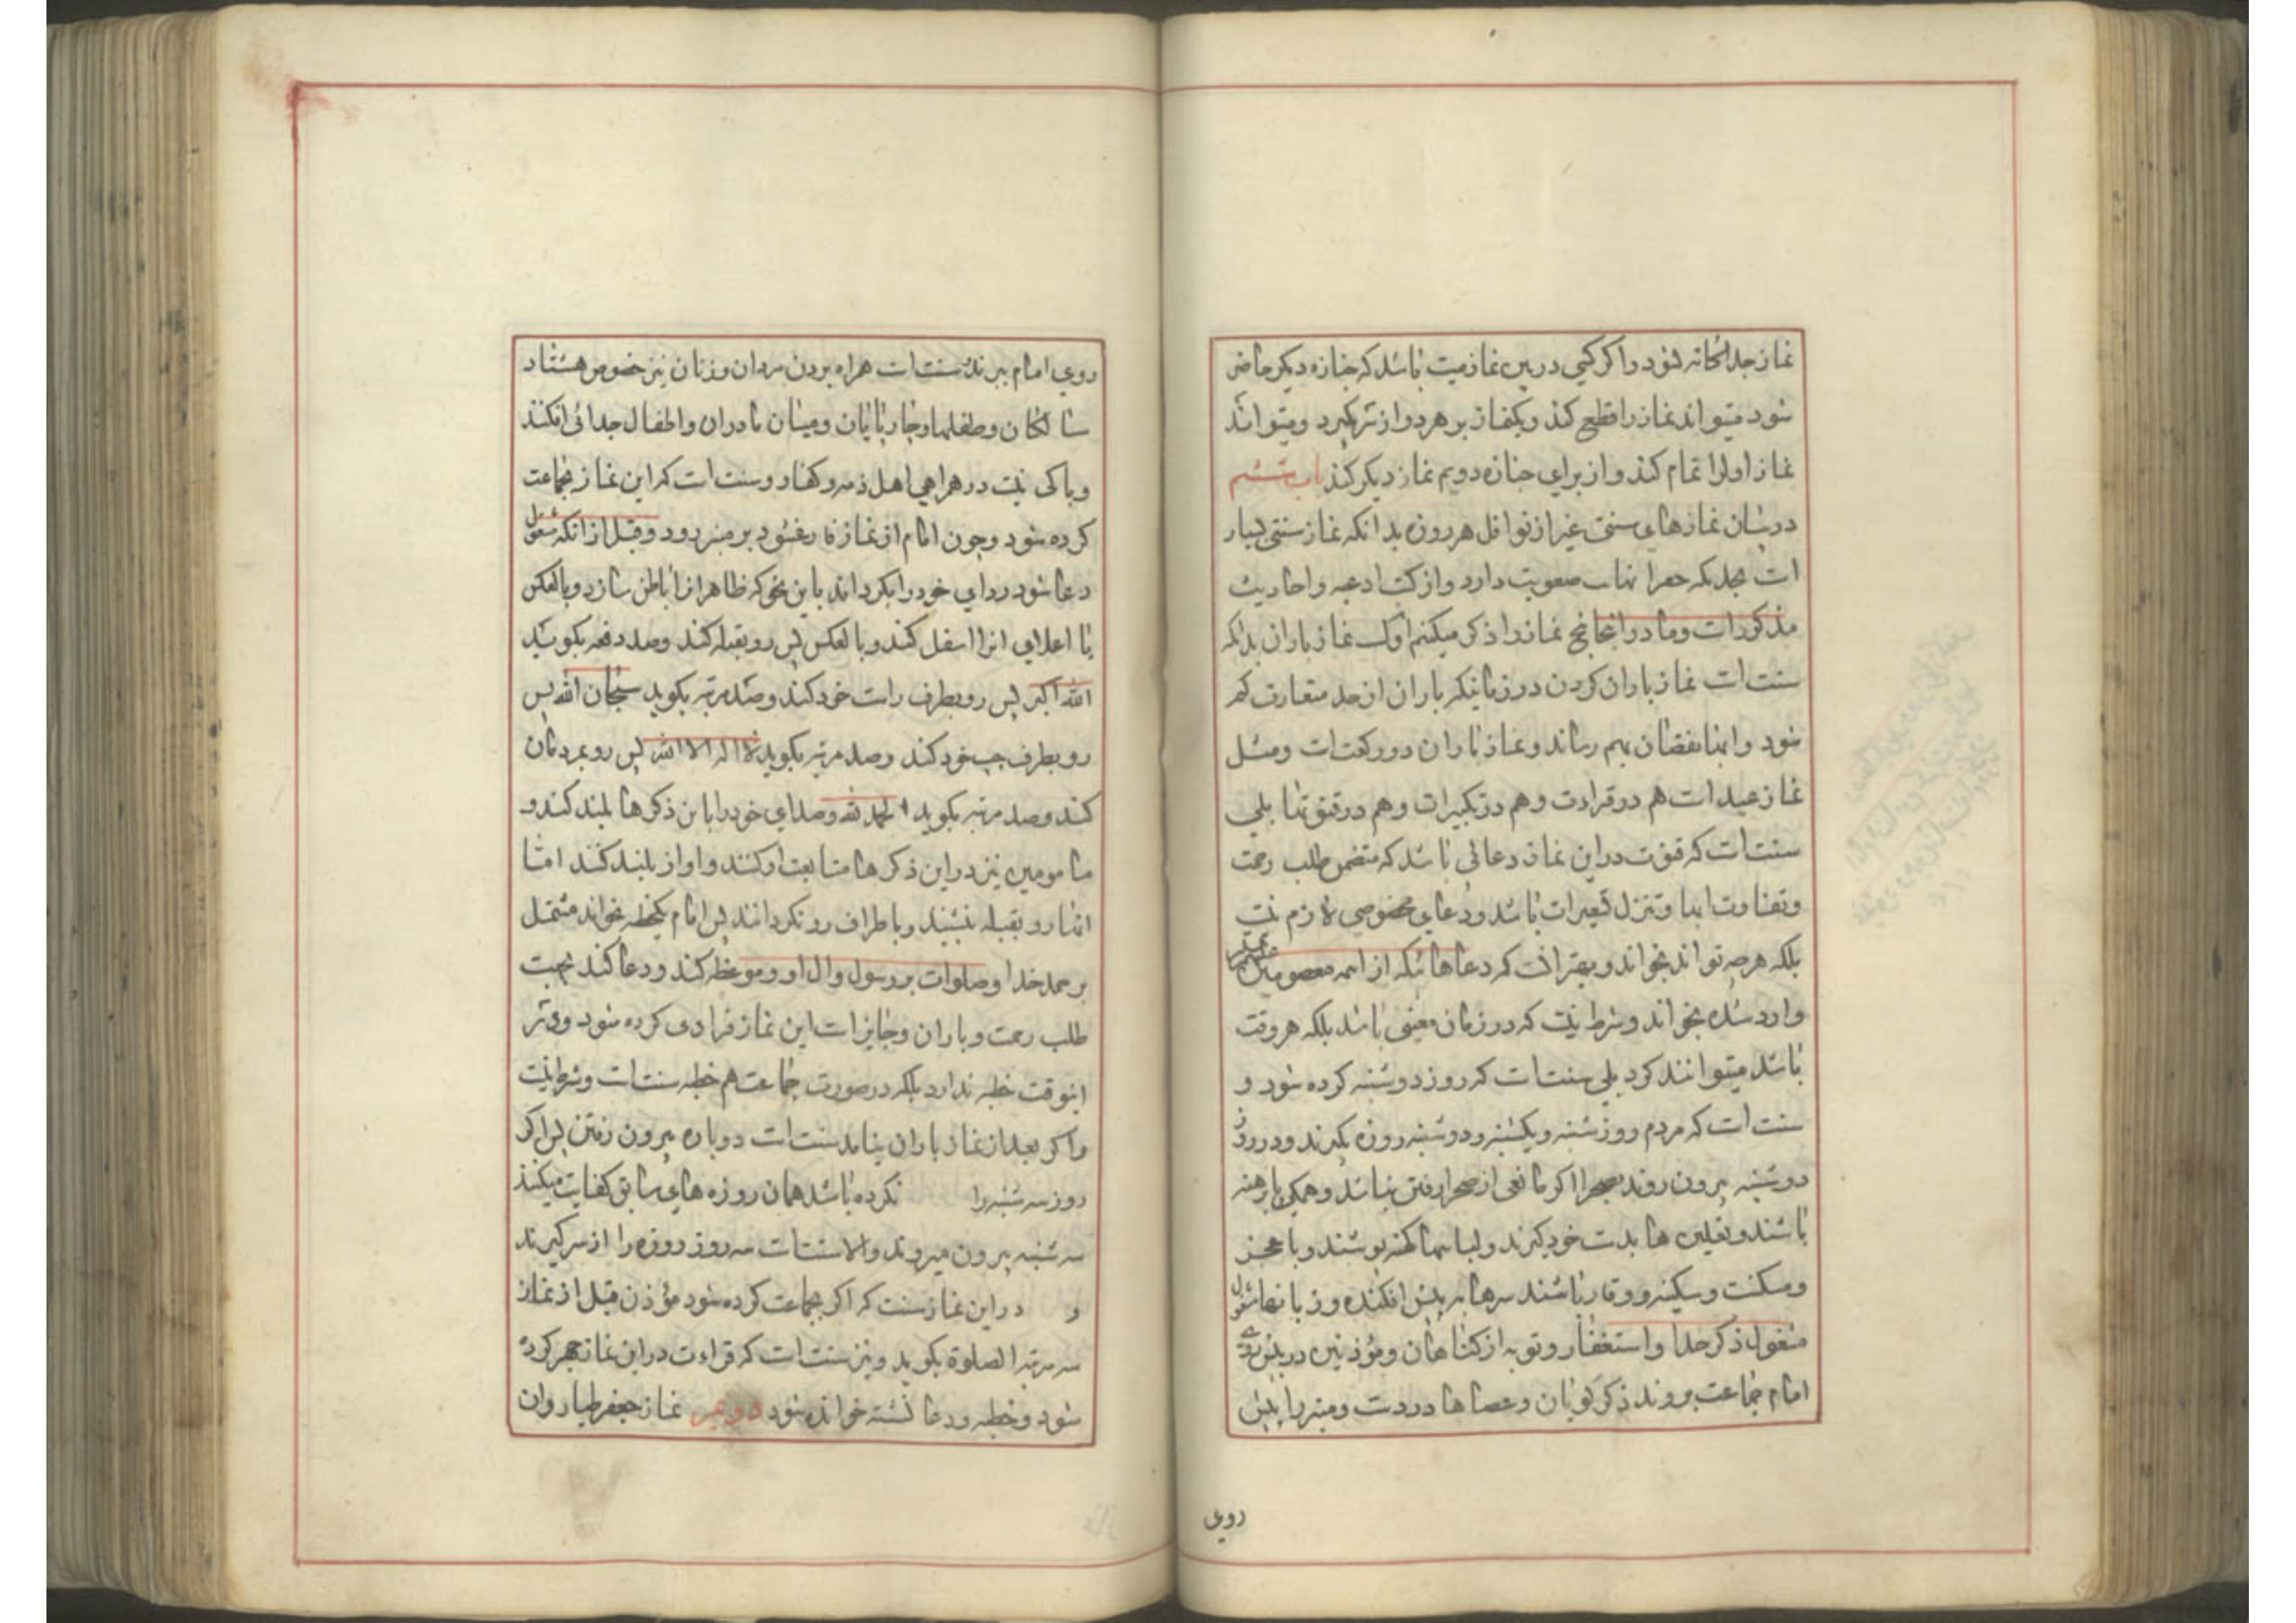 نماز جداگانه شود و اگر کسی در بین نماز میت باشد که جنازه دیگر حاضر
شود میتواند نماز را قطع کند و یکنماز بر هر دو از سر گیرد و میتواند
نماز اول را تمام کند و از برای جنازه دویم نماز دیگر کند باب ششم
در بیان نمازهای سنتی غیر از نوافل هر روزه بدانکه نماز سنتی بسیار
است بحدیکه حصر انها صعوبت دارد و از کتب ادعیه و احادیث
مذکور است و ما در اینجا پنج نماز را ذکر میکنیم اول نماز باران بدانکه
سنت است نماز باران کردن در زمانیکه باران از حد متعارف کم
شود و ابها نقصان بهم رساند و نماز باران دو رکعت است و مثل
نماز عید است هم در قراءت و هم در تکبیرات و هم در قنوتها بلی
سنت است که قنوت در این نماز دعائی باشد که متضمن طلب رحمت
و تفاوت ابها و تنزل تسعیرات باشد و دعای مخصوصی لازم نیست
بلکه هرچه تواند بخواند و بهتر انست که دعاهائیکه از ائمه معصومین
وارد شده بخواند و شرط نیست که در زمان معینی باشد بلکه هر وقت
باشد میتوانند کرد بلی سنت است که روز دوشنبه کرده شود و
سنت است که مردم روز شنبه و یکشنبه و دوشنبه روزه بگیرند و در روز
دوشنبه بیرون روند بصحرا اگر مانعی از صحرا رفتن نباشد و همگی پا برهنه
باشند و نعلین ها بدست خود گیرند و لباسها کهنه پوشند و با عجز
و مسکنت و سکینه و وقار باشند سرها به پیش افکنده و زبانها مشغول
مشغول ذکر خدا و استغفار و توبه از گناهان و مؤذنین در پیش روی
امام جماعت بروند ذکر گویان و عصاها در دست و منبر را پیش
روی
روی امام ببرند و سنت است همراه بردن مردان و زنان پیر خصوص هشتاد
سالگان و طفلها و چارپایان و میان مادران و اطفال جدائی افکنند
و باکی نیست در همراهی اهل ذمه و کفار و سنت است که این نماز بجماعت
کرده شود و چون امام از نماز فارغ شود بر منبر رود و قبل از انکه مشغول
دعا شود ردای خود را بگرداند باین نحو که ظاهر انرا باطن سازد و بالعکس
یا اعلای انرا اسفل کند و بالعکس پس رو بقبله کند و صد دفعه بگوید
الله اکبر پس رو بطرف راست خود کند و صد مرتبه بگوید سبحان الله پس
رو بطرف چپ خود کند و صد مرتبه بگوید لا اله الا الله پس رو بمردمان
کند و صد مرتبه بگوید الحمد لله و صدای خود را باین ذکرها بلند کند و
مامومین نیز در این ذکرها متابعت او کنند و اواز بلند کنند اما
انها رو بقبله بنشینند و باطراف رو نگردانند پس امام یکخطبه بخواند مشتمل
بر حمد خدا و صلوات بر رسول و ال او و موعظه کند و دعا کند بجهت
طلب رحمت و باران و جایز است این نماز فرادی کرده شود و در
اینوقت خطبه ندارد بلکه در صورت جماعت هم خطبه سنت است و شرط نیست
و اگر بعد از نماز باران نیامد سنت است دوباره بیرون رفتن پس اگر
روز سه شنبه را نکرده باشد همان روزه های سابق کفایت میکند
سه شنبه بیرون میروند و الا سنت است سه روز روزه را از سر گیرند
و در این نماز سنت که اگر بجماعت کرده شود مؤذن قبل از نماز
سه مرتبه الصلوة بگوید و نیز سنت است که قراءت در این نماز جهر کرده
شود و خطبه و دعا نشسته خوانده شود دویم نماز جعفر طیار و ان